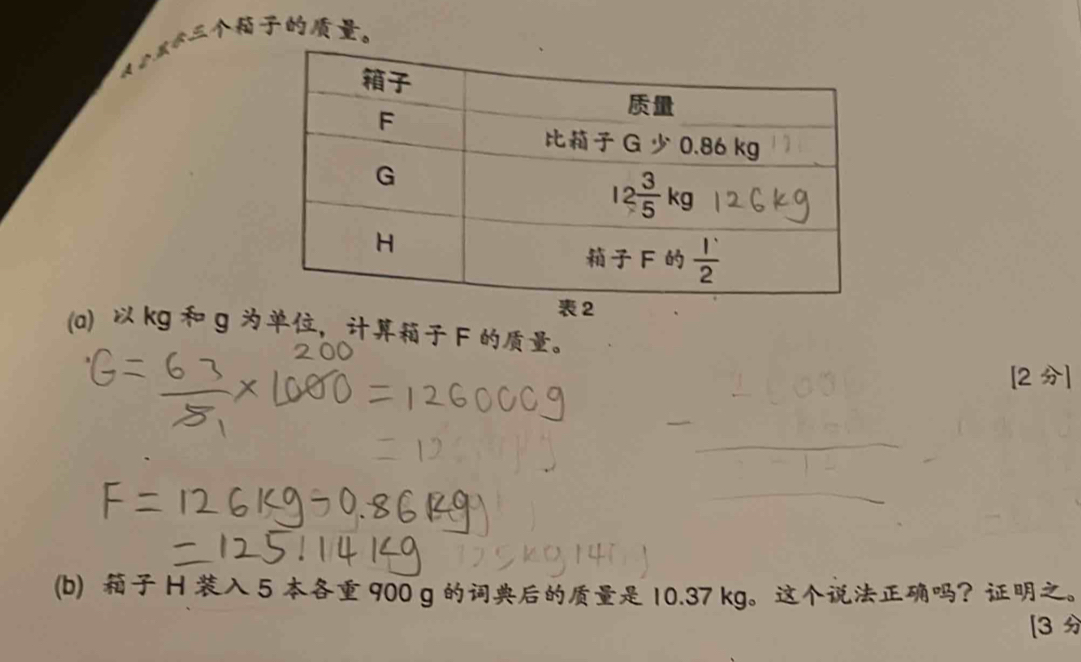 表2显示三个箱子的质量。
箱子 质量
F 比箱子 G 少 0.86 kg
G 12 3/5 kg 126kg
H 箱子 F 的 1/2
表2
(a) 以 kg 和 g 为单位，计算箱子 F 的质量。
[2 分]
G = 63/5 1 × 1000 200 = 126000g
F = 126kg - 0.86kg
= 125.114kg
(b) 箱子 H 装入 5 本各重 900 g 的词典后的质量是 10.37 kg。这个说法正确吗？证明之。
[3 分